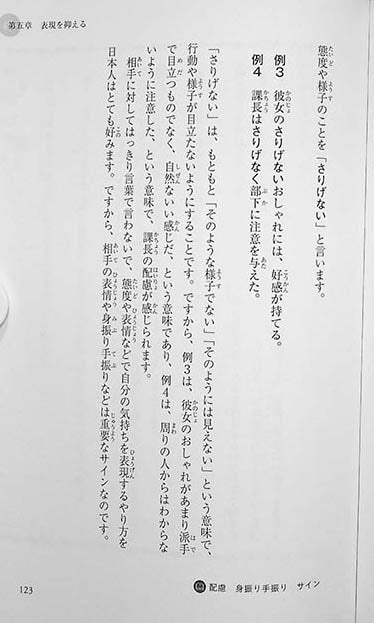 第五章　表現を抑える
態度や様子のことを「さりげない」と言います。
例３　彼女のさりげないおしゃれには、好感が持てる。
例４　課長はさりげなく部下に注意を与えた。
「さりげない」は、もともと「そのような様子でない」「そのようには見えない」という意味で、
行動や様子が目立たないようにすることです。ですから、例３は、彼女のおしゃれがあまり派手
で目立つものでなく、自然ないい感じだ、という意味であり、例４は、周りの人からはわからな
いように注意した、という意味で、課長の配慮が感じられます。
相手に対してはっきり言葉で言わないで、態度や表情などで自分の気持ちを表現するやり方を
日本人はとても好みます。ですから、相手の表情や身振り手振りなどは重要なサインなのです。
配慮　身振り手振り　サイン
123